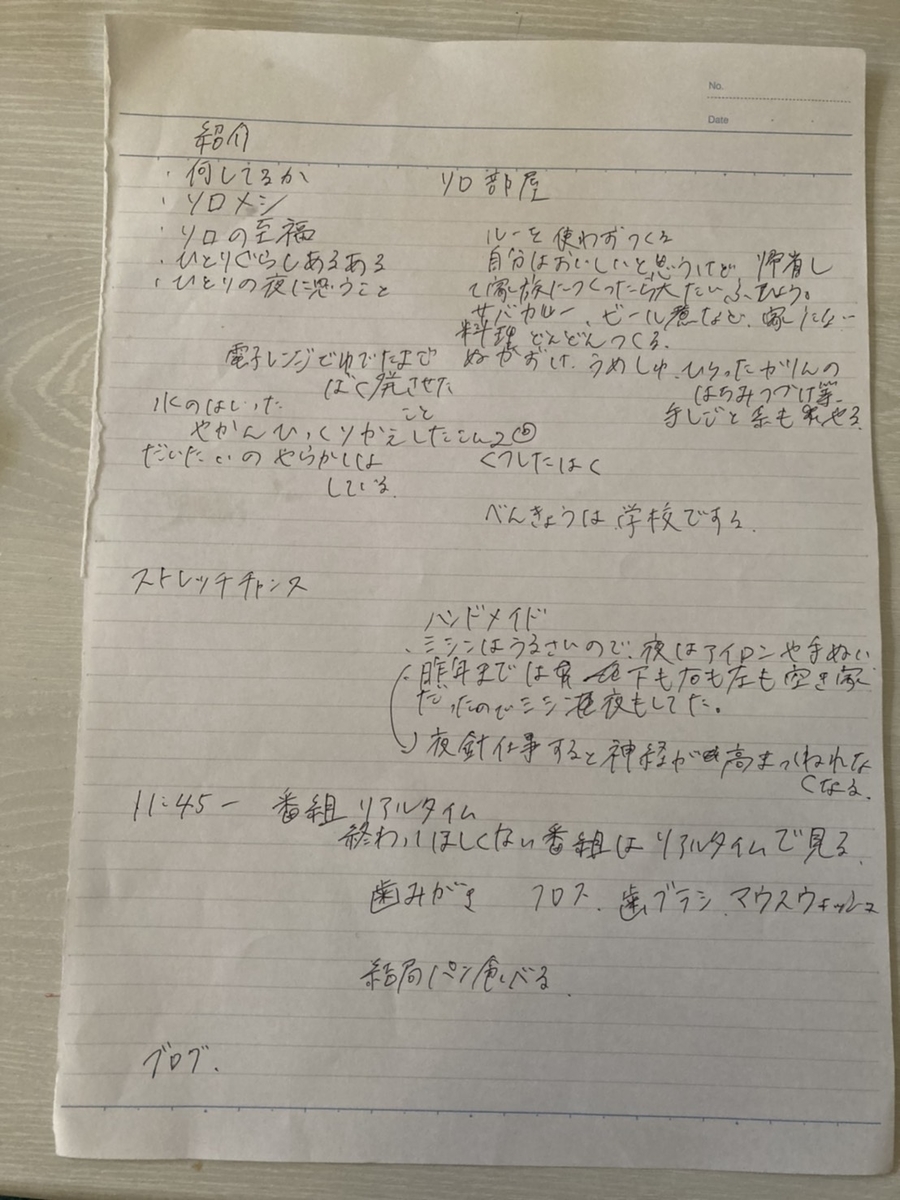 No.
Date
紹介
・何してるか
・ソロメシ
・ソロの至福
・ひとりぐらしあるある
・ひとりの夜に思うこと
ソロ部屋
ルーを使わずつくる
自分はおいしいと思うけど、帰省し
て家族につくったら大たいふひょう。
サバカレー、ビール煮など、家にない
料理どんどんつくる。
ぬかづけ、うめしゅ、ひろったかりんの
はちみつづけ等
手しごと系もやる
電子レンジでゆでたまご
ばく発させた
こと
水のはいった
やかんひっくりかえしたこと2
だいたいのやらかしは
している。
くつしたはく
べんきょうは学校でする。
ストレッチチャンス
ハンドメイド
・ミシンはうるさいので、夜はアイロンや手ぬい
・昨年までは 下も右も左も空き家
だったのでミシン夜もしてた。
夜針仕事すると神経が高まってねれな
くなる。
11:45〜 番組 リアルタイム
終わってほしくない番組はリアルタイムで見る。
歯みがき フロス、歯ブラシ、マウスウォッシュ
結局パン食べる。
ブログ.